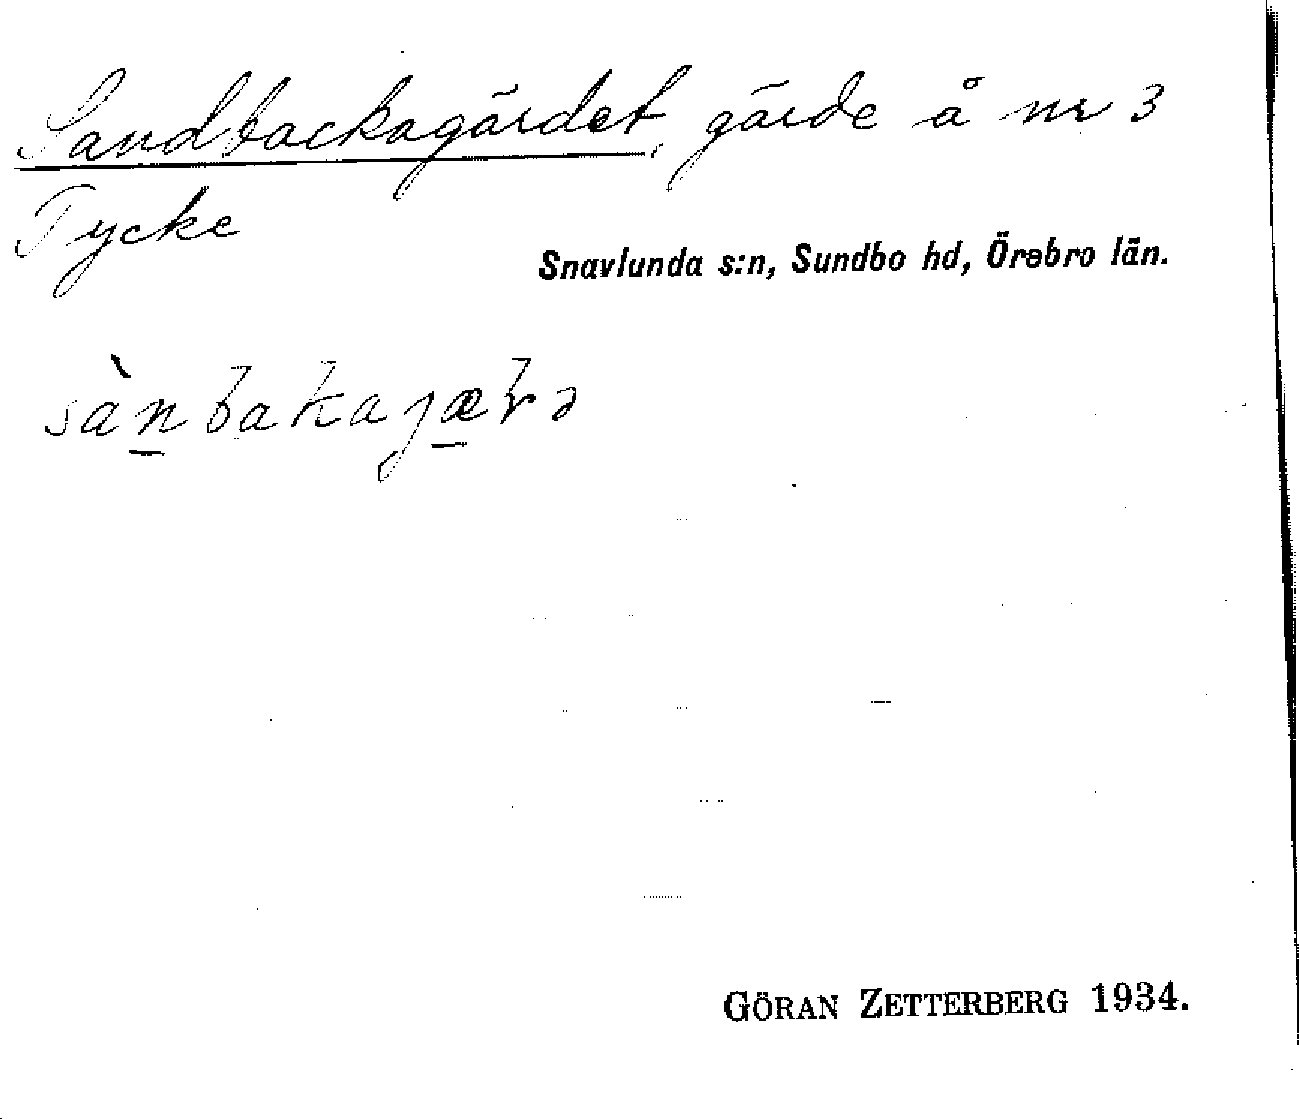 Sandbackagärdet, gärde å nr 3
Tycke
Snavlunda s:n, Sundbo hd, Örebro län.
sànbakajærə
GÖRAN ZETTERBERG 1934.